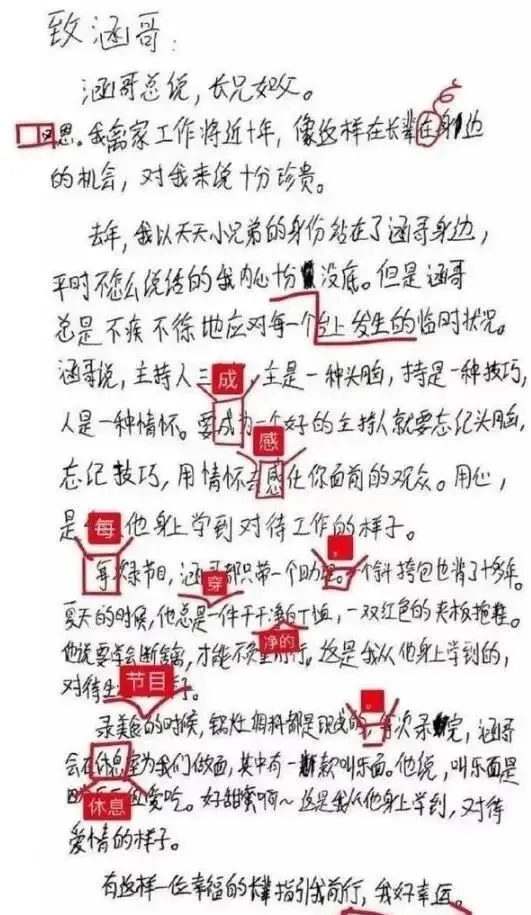 致涵哥：
涵哥总说，长兄如父。
恩。我离家工作将近十年，像这样在长辈在身边
的机会，对我来说十分珍贵。
去年，我以天天小兄弟的身份站在了涵哥身边，
平时不怎么说话的我内心十分没底。但是涵哥
总是不疾不徐地应对每一个台上发生的临时状况。
涵哥说，主持人三 成 ，主是一种头脑，持是一种技巧，
人是一种情怀。要成为一个好的主持人就要忘记头脑，
感
忘记技巧，用情怀去感化你面前的观众。用心，
是 每 他身上学到对待工作的样子。
每次录节目，涵哥都只带一个助理。一个斜挎包也背了十多年。
穿
夏天的时候，他总是一件干干净白T恤，一双红色的夹板拖鞋。
净的
他说要学会断舍离，才能不负重前行。这是我从他身上学到的，
对待生 节目 子。
录美食的时候，锅灶调料都是现成的，每次录完，涵哥
会在休息室为我们做面，其中有一款叫乐面。他说，叫乐面是
休息 爱吃。好甜蜜啊～这是我从他身上学到，对待
爱情的样子。
有这样一位幸福的长辈指引我前行，我好幸运。